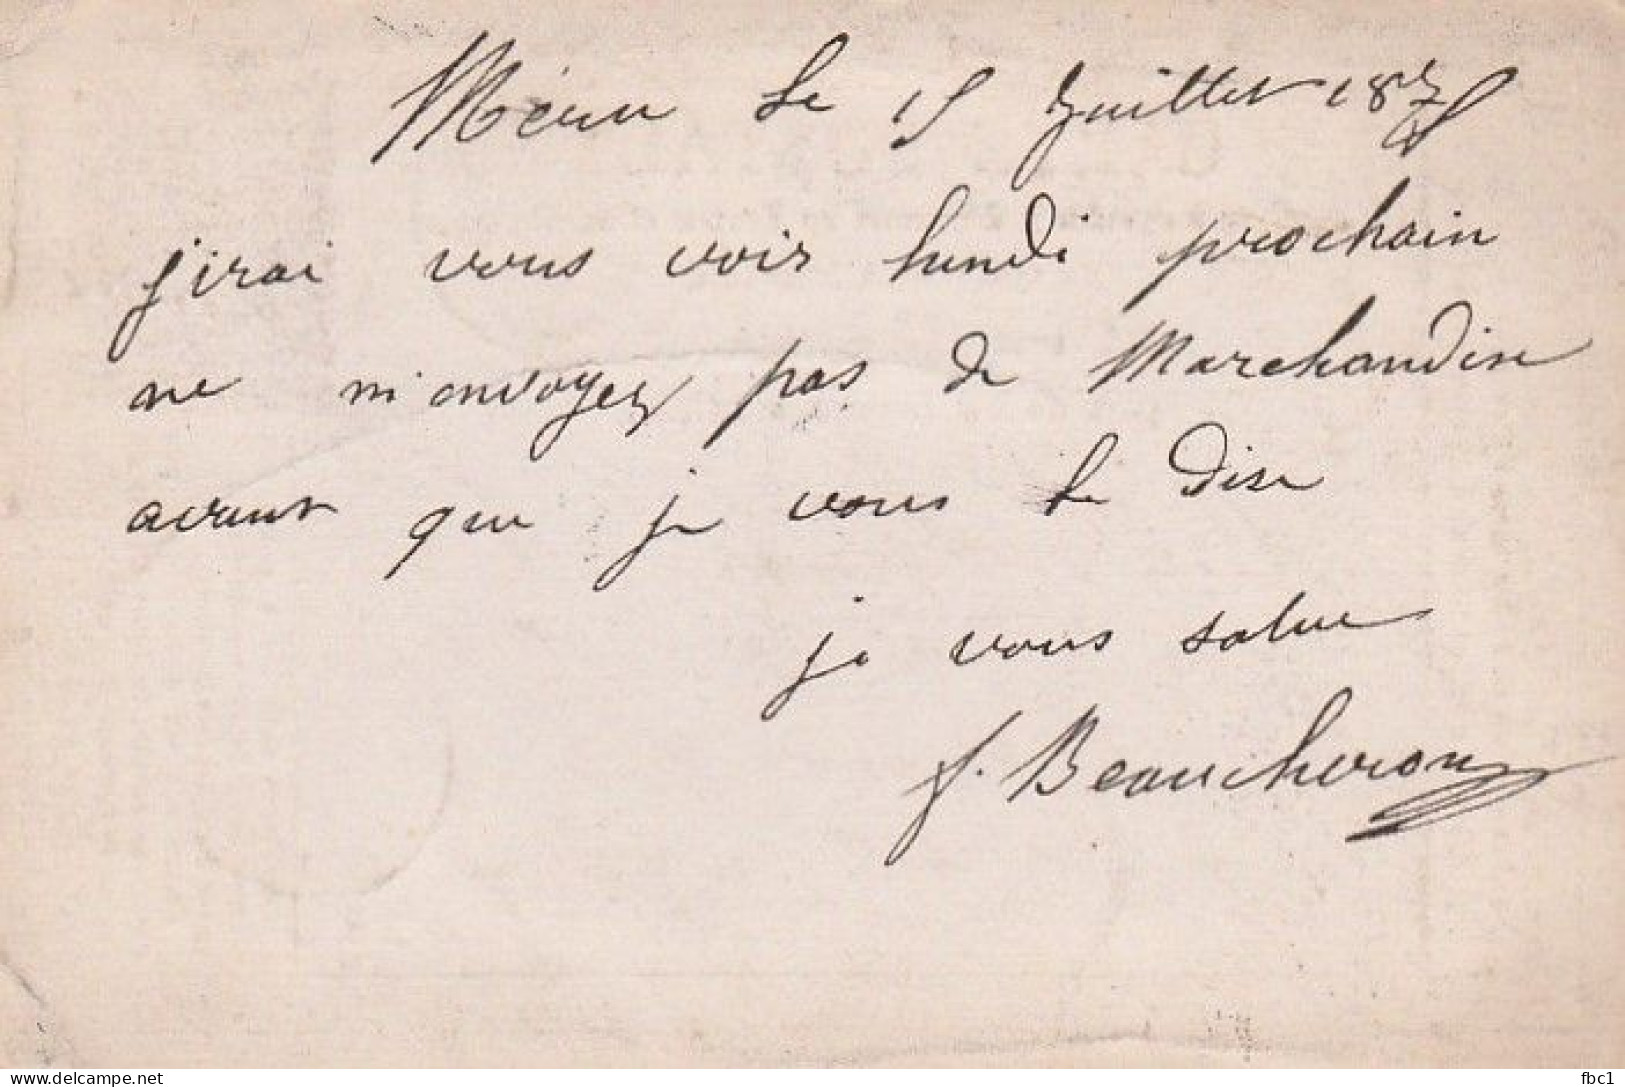 Méru le 15 Juillet 1875
jirai vous voir lundi prochain
ne m'envoyez pas de Marchandise
avant que je vous le dise
je vous salue
f. Beaucheron
www.delcampe.net
fbc1